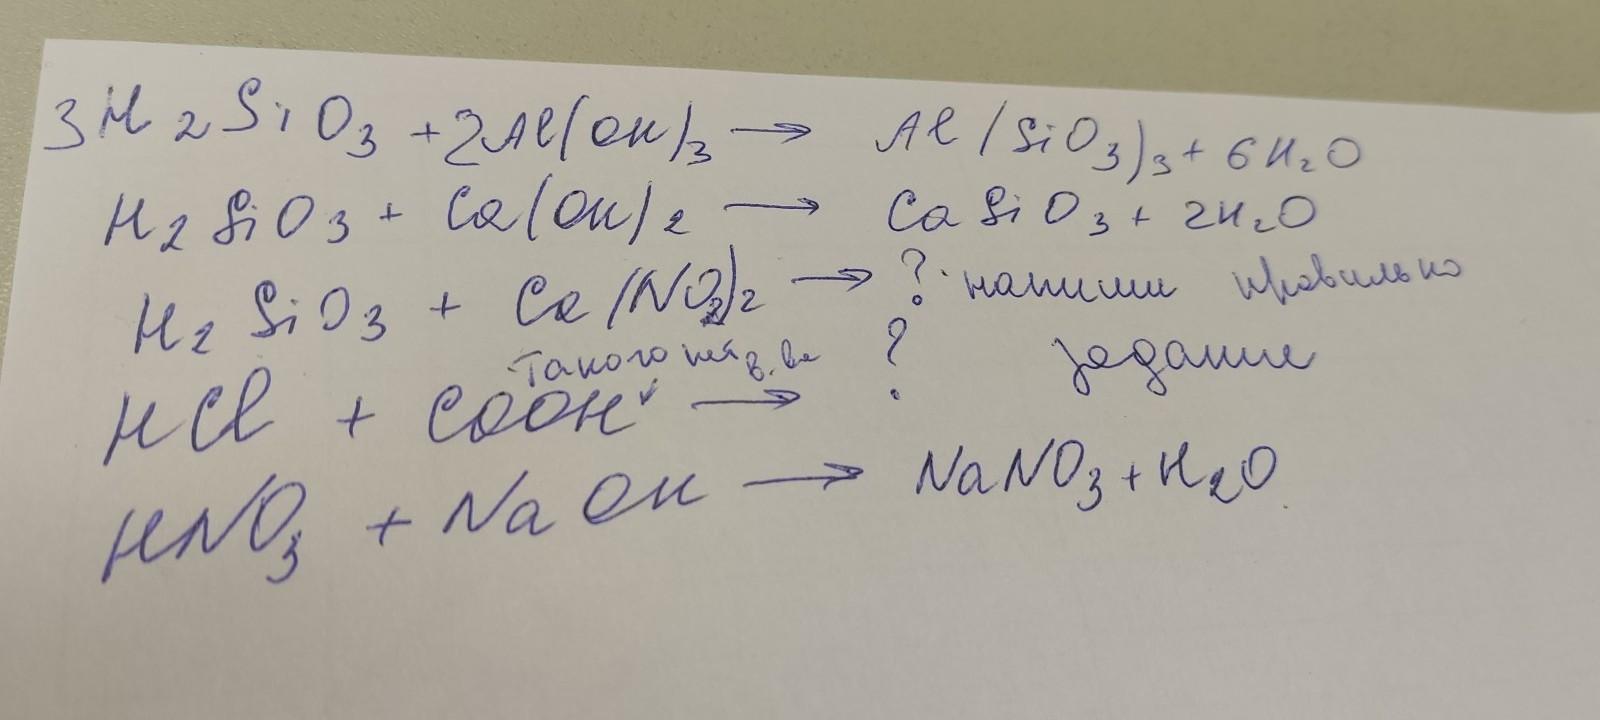 3H₂SiO₃ + 2Al(OH)₃ → Al(SiO₃)₃ + 6H₂O
H₂SiO₃ + Ca(OH)₂ → CaSiO₃ + 2H₂O
H₂SiO₃ + Ca(NO₂)₂ → ? напиши правильно
такого нет в-ва ? задание
HCl + COOH →
HNO₃ + NaOH → NaNO₃ + H₂O